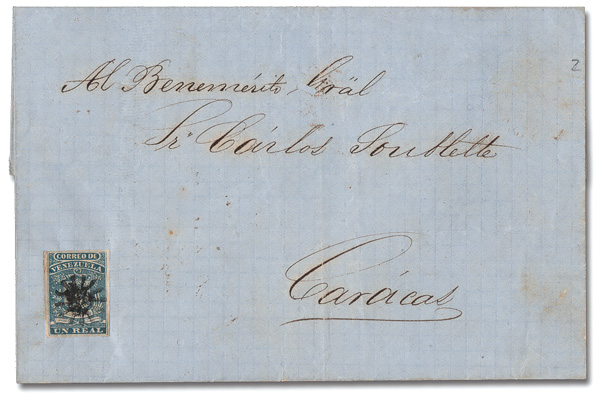 2
Al Benemérito, Gräl
Sr Cárlos Soublette
Carácas
CORREO DE
VENEZUELA
UN REAL